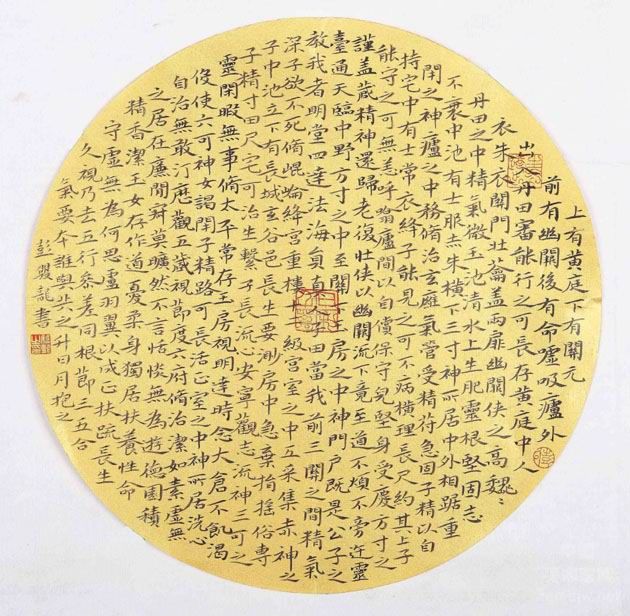 上有黄庭下有關元
前有幽關後有命噓吸廬外
出入丹田審能行之可長存黄庭中人
衣朱衣關門壯蘥蓋兩扉幽關俠之高魏〻
丹田之中精氣微玉池清水上生肥靈根堅固志
不衰中池有士服赤朱橫下三寸神所居中外相踞重
閇之神廬之中務脩治玄廱氣管受精符急固子精以自
持宅中有士常衣絳子能見之可不病橫理長尺約其上子
能守之可無恙呼翕廬間以自償保守皃堅身受慶方寸之
謹蓋藏精神還歸老復壯俠以幽關流下竟至道不煩不旁迕靈
臺通天臨中野方寸之中至關下玉房之中神門户既是公子之
教我者明堂四達法海員真人子丹當我前三關之間精氣
深子欲不死脩崐崘絳宮重樓級宮室之中五采集赤神之
子中池立下有長城玄谷邑長生要眇房中急棄捐搖俗專
子精寸田尺宅可治生繫子長流心安寧觀志流神三可之
靈閑暇無事脩太平常存玉房視明達時念大倉不飢渴
役使六丁神女謁閇子精路可長活正室之中神所居洗心
自治無敢汙歷觀五藏視節度六府脩治潔如素虛無
之居在廉間寂莫曠然不言恬惔無為遊德園積
精香潔玉女存作道憂柔身獨居扶養性命
守虛無為何思慮羽翼以成正扶疏長生
久視乃去五行參差同根節三五合
氣要本誰與共之升日月抱之
彭龍書